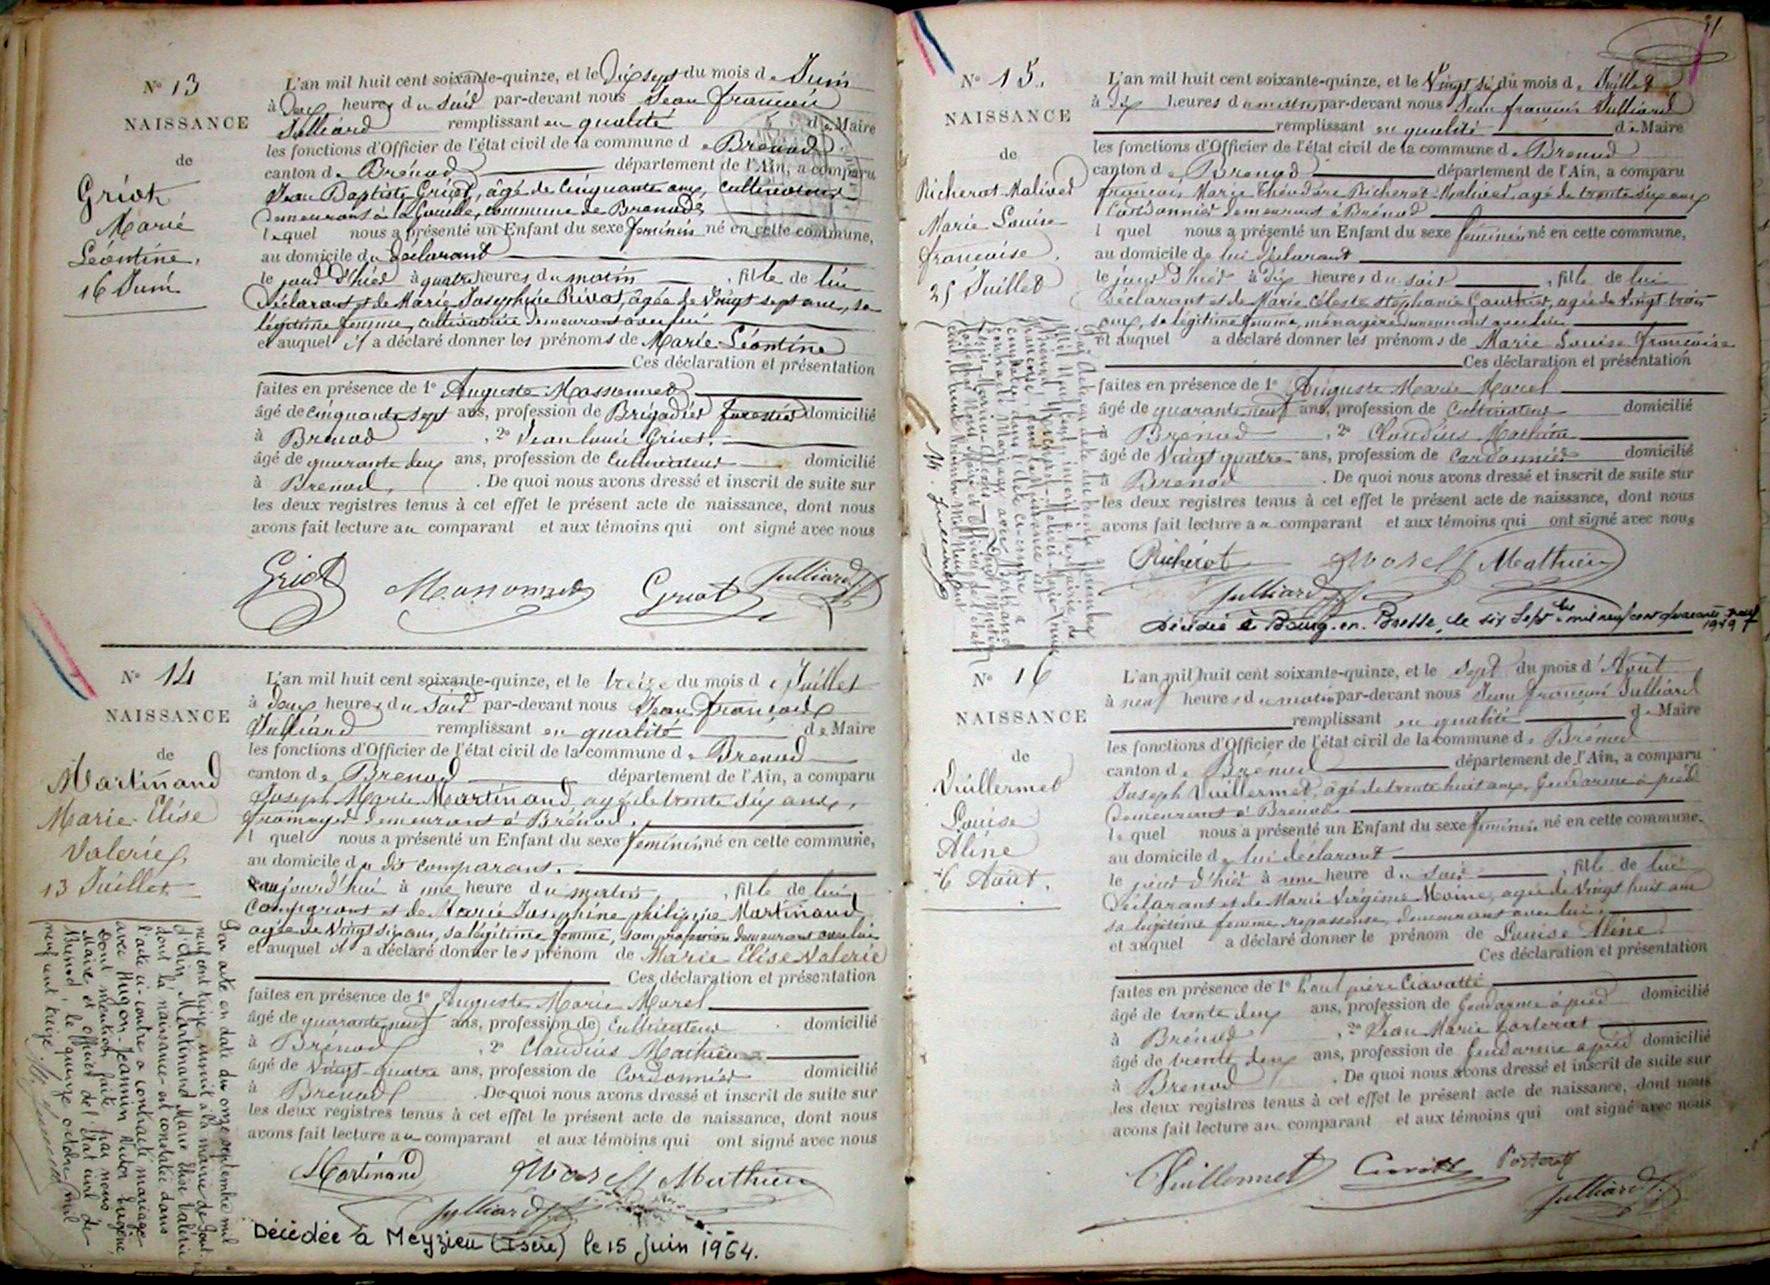 N° 13
NAISSANCE
de
Griot
Marie
Léontine.
16 Juin
L'an mil huit cent soixante-quinze, et le Dix sept du mois de Juin
à Deux heures du Soir par-devant nous Jean françois
Julliard remplissant en qualité de Maire
les fonctions d'Officier de l'état civil de la commune de Brenod
canton de Brénod département de l'Ain, a comparu
Jean Baptiste Griot, âgé de Cinquante ans, cultivateur
demeurant à la Gouille, commune de Brenod
lequel nous a présenté un Enfant du sexe feminin né en cette commune,
au domicile du déclarant
le jour d'hier à quatre heures du matin, fille de lui
Déclarant et de Marie Josephine Rivat, agée de Vingt sept ans, sa
légitime femme, cultivatrice demeurant avec lui
et auquel il a déclaré donner les prénoms de Marie Léontine
Ces déclaration et présentation
faites en présence de 1° Auguste Massonnet
âgé de Cinquante sept ans, profession de Brigadier forestier domicilié
à Brenod, 2° Jean louis Griot.
âgé de quarante deux ans, profession de Cultivateur domicilié
à Brenod. De quoi nous avons dressé et inscrit de suite sur
les deux registres tenus à cet effet le présent acte de naissance, dont nous
avons fait lecture au comparant et aux témoins qui ont signé avec nous
Griot Massonnet Griot Julliard
N° 14
NAISSANCE
de
Martinand
Marie Elise
Valerie
13 Juillet
L'an mil huit cent soixante-quinze, et le treize du mois de Juillet
à Deux heures du Soir par-devant nous Jean françois
Julliard remplissant en qualité de Maire
les fonctions d'Officier de l'état civil de la commune de Brenod
canton de Brenod département de l'Ain, a comparu
Joseph Marie Martinand, agé de trente six ans,
fromager demeurant à Brénod.
lequel nous a présenté un Enfant du sexe feminin né en cette commune,
au domicile du dit comparant.
aujourd'hui à une heure du matin, fille de lui
Comparant et de Marie Josephine philippie Martinand
agée de Vingt six ans, sa légitime femme, sans profession demeurant avec lui
et auquel il a déclaré donner les prénom de Marie Elise Valerie
Ces déclaration et présentation
faites en présence de 1° Auguste Marie Morel
âgé de quarante neuf ans, profession de Cultivateur domicilié
à Brénod, 2° Claudius Mathieu
âgé de Vingt quatre ans, profession de Cordonnier domicilié
à Brenod. De quoi nous avons dressé et inscrit de suite sur
les deux registres tenus à cet effet le présent acte de naissance, dont nous
avons fait lecture au comparant et aux témoins qui ont signé avec nous
Martinand Morel Mathieu
Julliard
Décédée à Meyzieu (Isère) le 15 juin 1964.
Par acte en date du onze septembre mil
neuf cent treize, inscrit à la mairie de
d'Ain, Martinand Marie Elise Valérie
dont la naissance est constatée dans
l'acte ci-contre a contracté mariage
avec Hugon-Jeannin Victor Eugène,
Dont mention faite par nous
Maire et officier de l'état civil de
Brénod, le quinze octobre mil
neuf cent treize.
N° 15.
NAISSANCE
de
Richerot Malivert
Marie Louise
françoise.
25 Juillet
L'an mil huit cent soixante-quinze, et le Vingt six du mois de Juillet
à dix heures du matin, par-devant nous Jean françois Julliard
remplissant en qualité de Maire
les fonctions d'Officier de l'état civil de la commune de Brenod
canton de Brenod département de l'Ain, a comparu
françois Marie Théodore Richerot-Malivert, agé de trente six ans
Cordonnier demeurant à Brénod
l quel nous a présenté un Enfant du sexe féminin né en cette commune,
au domicile de lui déclarant
le jour d'hier à dix heures du soir, fille de lui
Déclarant et de Marie Céleste stephanie Gauthier, agée de Vingt trois
ans, sa légitime femme, ménagère demeurant avec lui
et auquel a déclaré donner les prénoms de Marie Louise françoise
Ces déclaration et présentation
faites en présence de 1° Auguste Marie Morel
âgé de quarante neuf ans, profession de Cultivateur domicilié
à Brénod, 2° Claudius Mathieu
âgé de Vingt quatre ans, profession de Cordonnier domicilié
à Brenod. De quoi nous avons dressé et inscrit de suite sur
les deux registres tenus à cet effet le présent acte de naissance, dont nous
avons fait lecture au comparant et aux témoins qui ont signé avec nous
Richerot Morel Mathieu
Julliard
Décédée à Bourg-en-Bresse, le six Septbre mil neuf cent quarante neuf
1949
N° 16
NAISSANCE
de
Vuillermet
Louise
Aline
6 Août.
L'an mil huit cent soixante-quinze, et le sept du mois d'Août
à neuf heures du matin par-devant nous Jean françois Julliard
remplissant en qualité de Maire
les fonctions d'Officier de l'état civil de la commune de Brénod
canton de Brénod département de l'Ain, a comparu
Joseph Vuillermet, agé de trente huit ans, Gendarme à pied
demeurant à Brénod
lequel nous a présenté un Enfant du sexe féminin né en cette commune.
au domicile de lui déclarant
le jour d'hier à une heure du soir, fille de lui
Déclarant et de Marie Virginie Moine, agée de Vingt huit ans
sa légitime femme repasseuse, demeurant avec lui.
et auquel a déclaré donner le prénom de Louise Aline
Ces déclaration et présentation
faites en présence de 1° Paul pierre Ciavatti
âgé de trente deux ans, profession de Gendarme à pied domicilié
à Brénod, 2° Jean Marie Porterat
âgé de trente deux ans, profession de Gendarme à pied domicilié
à Brenod. De quoi nous avons dressé et inscrit de suite sur
les deux registres tenus à cet effet le présent acte de naissance, dont nous
avons fait lecture au comparant et aux témoins qui ont signé avec nous
Vuillermet Porterat
Julliard